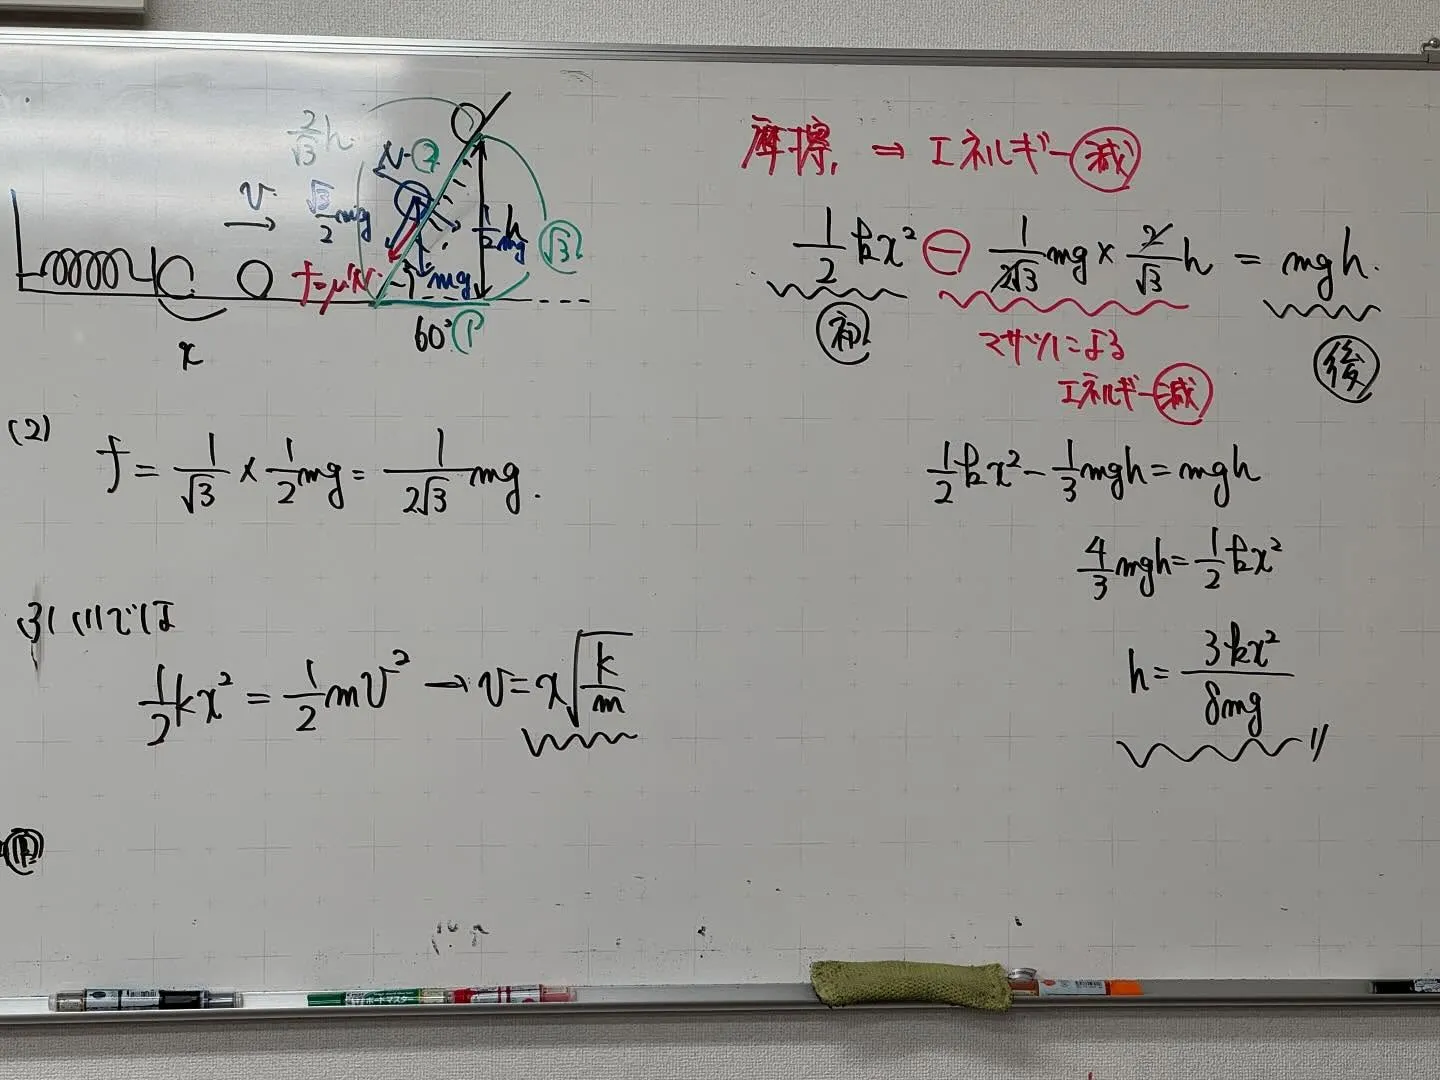 2/√3 h
N
②
v
√3/2 mg
1/2 mg
h
√3
f=μ'N
mg
60°
①
x
摩擦 ⇒ エネルギー減
1/2 kx² ㊀ 1/2√3 mg × 2/√3 h = mgh.
初
マサツによる
エネルギー減
後
(2)
f = 1/√3 × 1/2 mg = 1/2√3 mg.
1/2 kx² - 1/3 mgh = mgh
4/3 mgh = 1/2 kx²
h = 3kx²/8mg
(3) (1)では
1/2 kx² = 1/2 mv² → v = x√k/m
ボードマスター